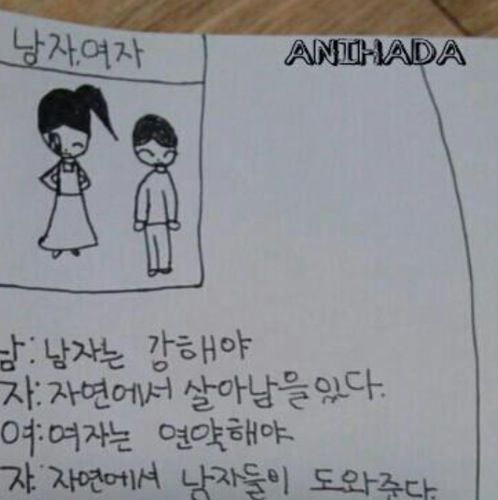 남자, 여자
ANIHADA
남: 남자는 강해야
자: 자연에서 살아남을있다.
여: 여자는 연약해야
자: 자연에서 남자들이 도와준다